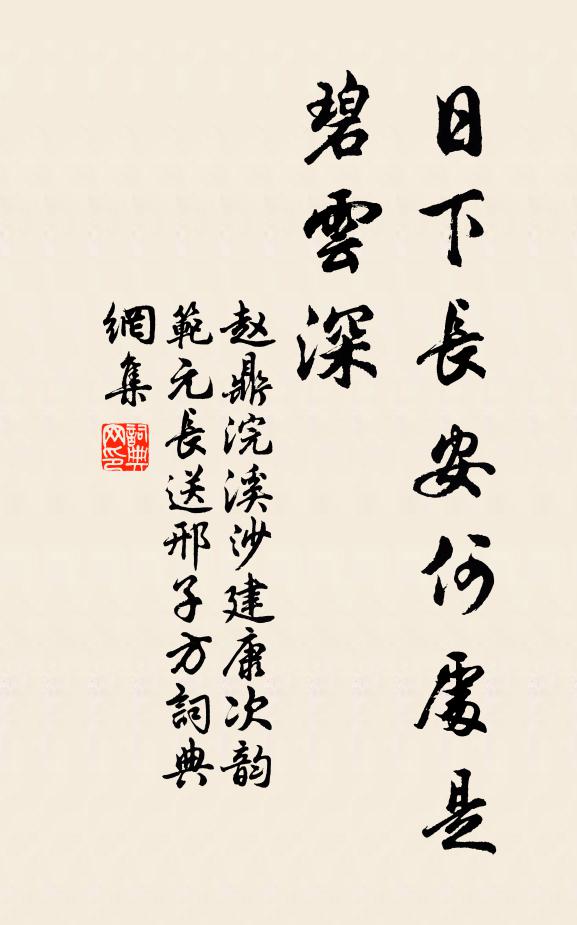 日下長安何處是
碧雲深
赵鼎浣溪沙建康次韵
範元長送邢子方詞典
網集
詞典网印